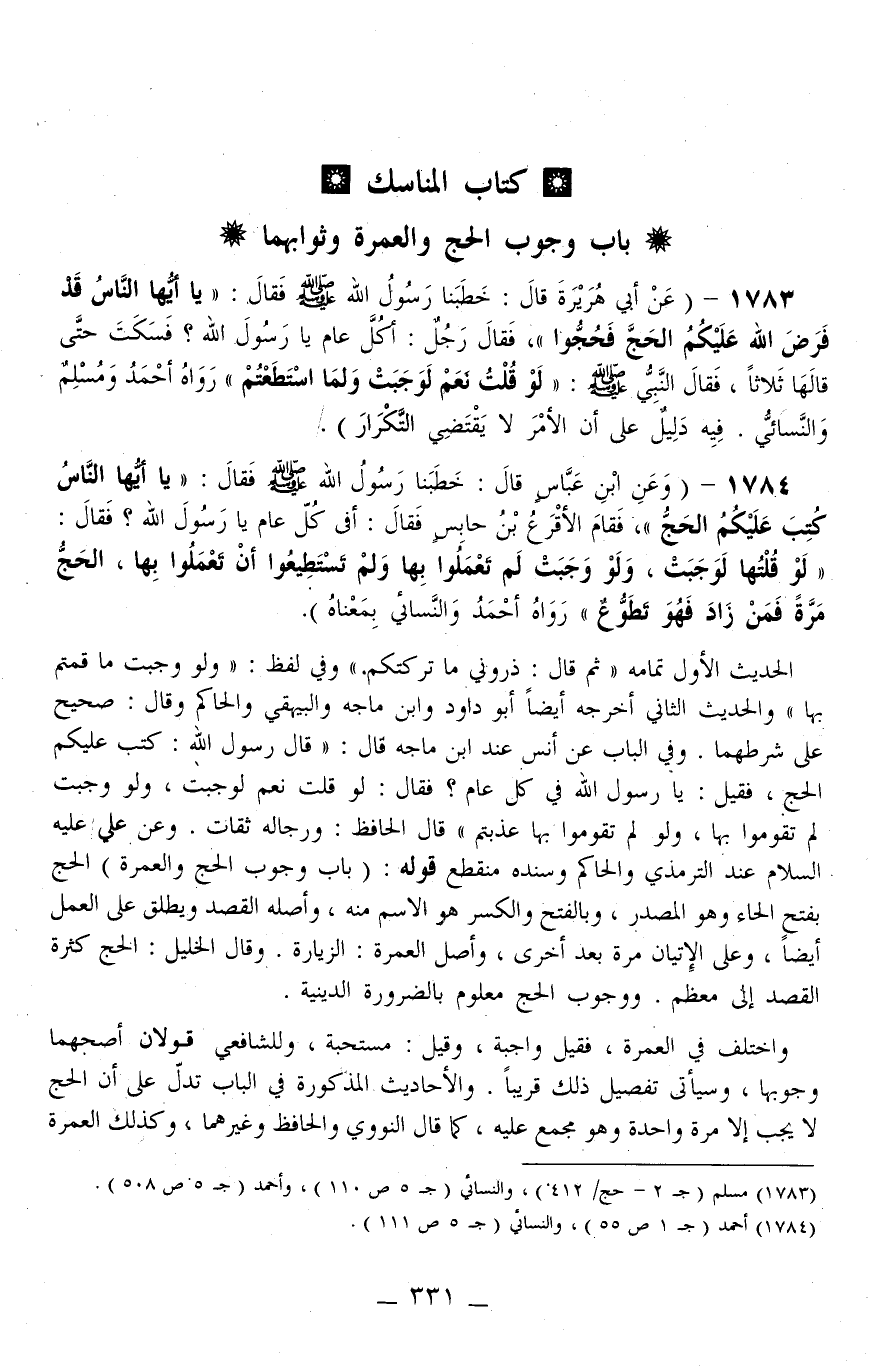 كتاب المناسك
باب وجوب الحج والعمرة وثوابهما
١٧٨٣ - ( عَنْ أبي هُرَيْرَةَ قالَ : خَطَبَنا رَسُولُ الله ﷺ فَقالَ : « يا أيُّها النَّاسُ قَدْ
فَرَضَ الله عَلَيْكُمُ الحَجَّ فَحُجُّوا »، فَقالَ رَجُلٌ : أكُلَّ عام يا رَسُولَ الله ؟ فَسَكَتَ حتَّى
قالَهَا ثَلاثاً ، فَقالَ النَّبِيُّ ﷺ : « لَوْ قُلْتُ نَعَمْ لَوَجَبَتْ وَلمَا اسْتَطَعْتُمْ » رَوَاهُ أحْمَدُ وَمُسْلِمٌ
وَالنَّسائيُّ . فِيه دَلِيلٌ على أن الأمْرَ لا يَقْتَضِي التَّكْرَارَ ) .
١٧٨٤ - ( وَعَنِ ابْنِ عَبَّاسٍ قالَ : خَطَبَنا رَسُولُ الله ﷺ فَقالَ : « يا أيُّها النَّاسُ
كُتِبَ عَلَيْكُمُ الحَجُّ »، فَقامَ الأقْرَعُ بْنُ حابِسٍ فَقالَ : أفى كُلّ عام يا رَسُولَ الله ؟ فَقالَ :
« لَوْ قُلْتُها لَوَجَبَتْ ، وَلَوْ وَجَبَتْ لَم تَعْمَلُوا بِها وَلمْ تَسْتَطِيعُوا أنْ تَعْمَلُوا بِها ، الحَجُّ
مَرَّةً فَمَنْ زَادَ فَهُوَ تَطَوُّعٌ » رَوَاهُ أحْمَدُ وَالنَّسائيُّ بِمَعْناهُ ).
الحديث الأول تمامه « ثم قال : ذروني ما تركتكم.» وفي لفظ : « ولو وجبت ما قمتم
بها » والحديث الثاني أخرجه أيضاً أبو داود وابن ماجه والبيهقي والحاكم وقال : صحيح
على شرطهما . وفي الباب عن أنس عند ابن ماجه قال : « قال رسول الله : كتب عليكم
الحج ، فقيل : يا رسول الله في كل عام ؟ فقال : لو قلت نعم لوجبت ، ولو وجبت
لم تقوموا بها ، ولو لم تقوموا بها عذبتم » قال الحافظ : ورجاله ثقات . وعن علي عليه
السلام عند الترمذي والحاكم وسنده منقطع قوله : ( باب وجوب الحج والعمرة ) الحج
بفتح الحاء وهو المصدر ، وبالفتح والكسر هو الاسم منه ، وأصله القصد ويطلق على العمل
أيضاً ، وعلى الإتيان مرة بعد أخرى ، وأصل العمرة : الزيارة . وقال الخليل : الحج كثرة
القصد إلى معظم . ووجوب الحج معلوم بالضرورة الدينية .
واختلف في العمرة ، فقيل واجبة ، وقيل : مستحبة ، وللشافعي قولان أصحهما
وجوبها ، وسيأتى تفصيل ذلك قريباً . والأحاديث المذكورة في الباب تدلّ على أن الحج
لا يجب إلا مرة واحدة وهو مجمع عليه ، كما قال النووي والحافظ وغيرهما ، وكذلك العمرة
(١٧٨٣) مسلم ( جـ ٢ - حج/ ٤١٢ ) ، والنسائي ( جـ ٥ ص ١١٠ ) ، وأحمد ( جـ ٥ ص ٥٠٨ ) .
(١٧٨٤) أحمد ( جـ ١ ص ٥٥ ) ، والنسائي ( جـ ٥ ص ١١١ ) .
_ ٣٣١ _